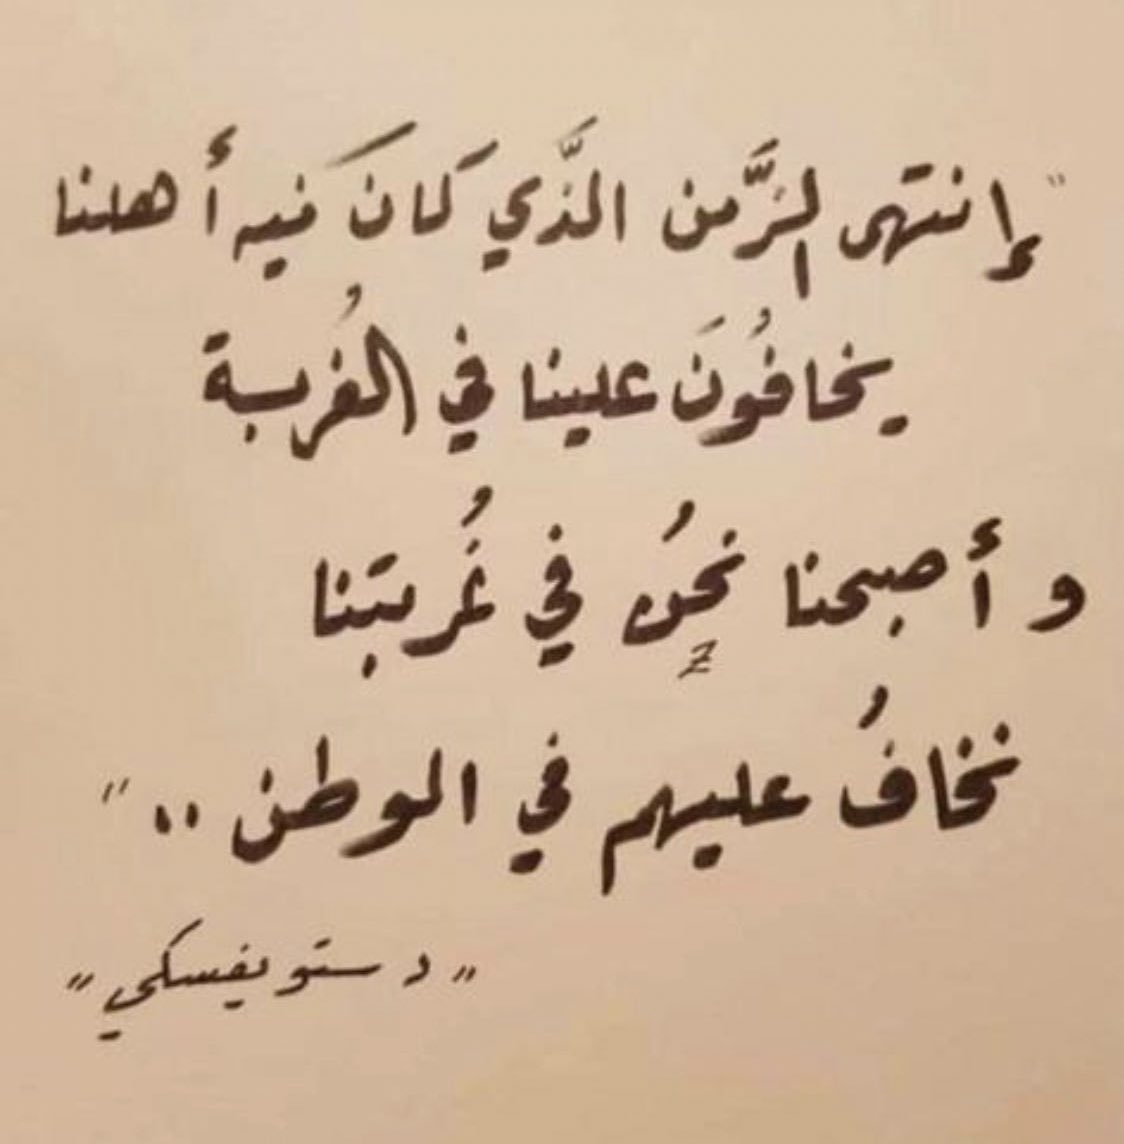 "إنتهى الزَّمن الَّذي كَانَ فيه أهلنا
يخافُونَ علينا في الغُربة
و أصبحنا نحنُ في غُربتنا
نخافُ عليهم في الوطن .. "
" دستويفسكي "